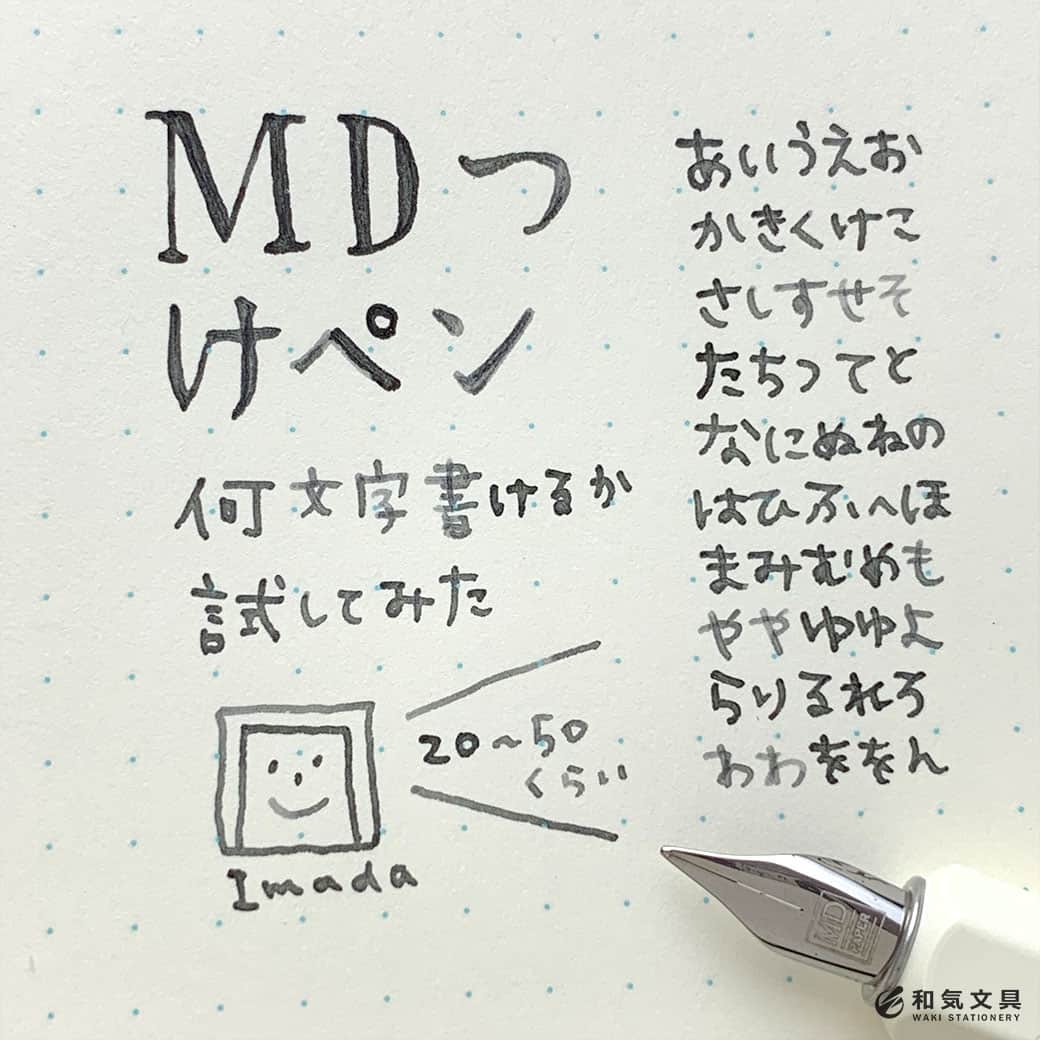 MDつ
けペン
何文字書けるか
試してみた
20~50
くらい
Imada
あいうえお
かきくけこ
さしすせそ
たちつてと
なにぬねの
はひふへほ
まみむめも
ややゆゆよ
らりるれろ
わわををん
MD
PAPER
和気文具
WAKI STATIONERY